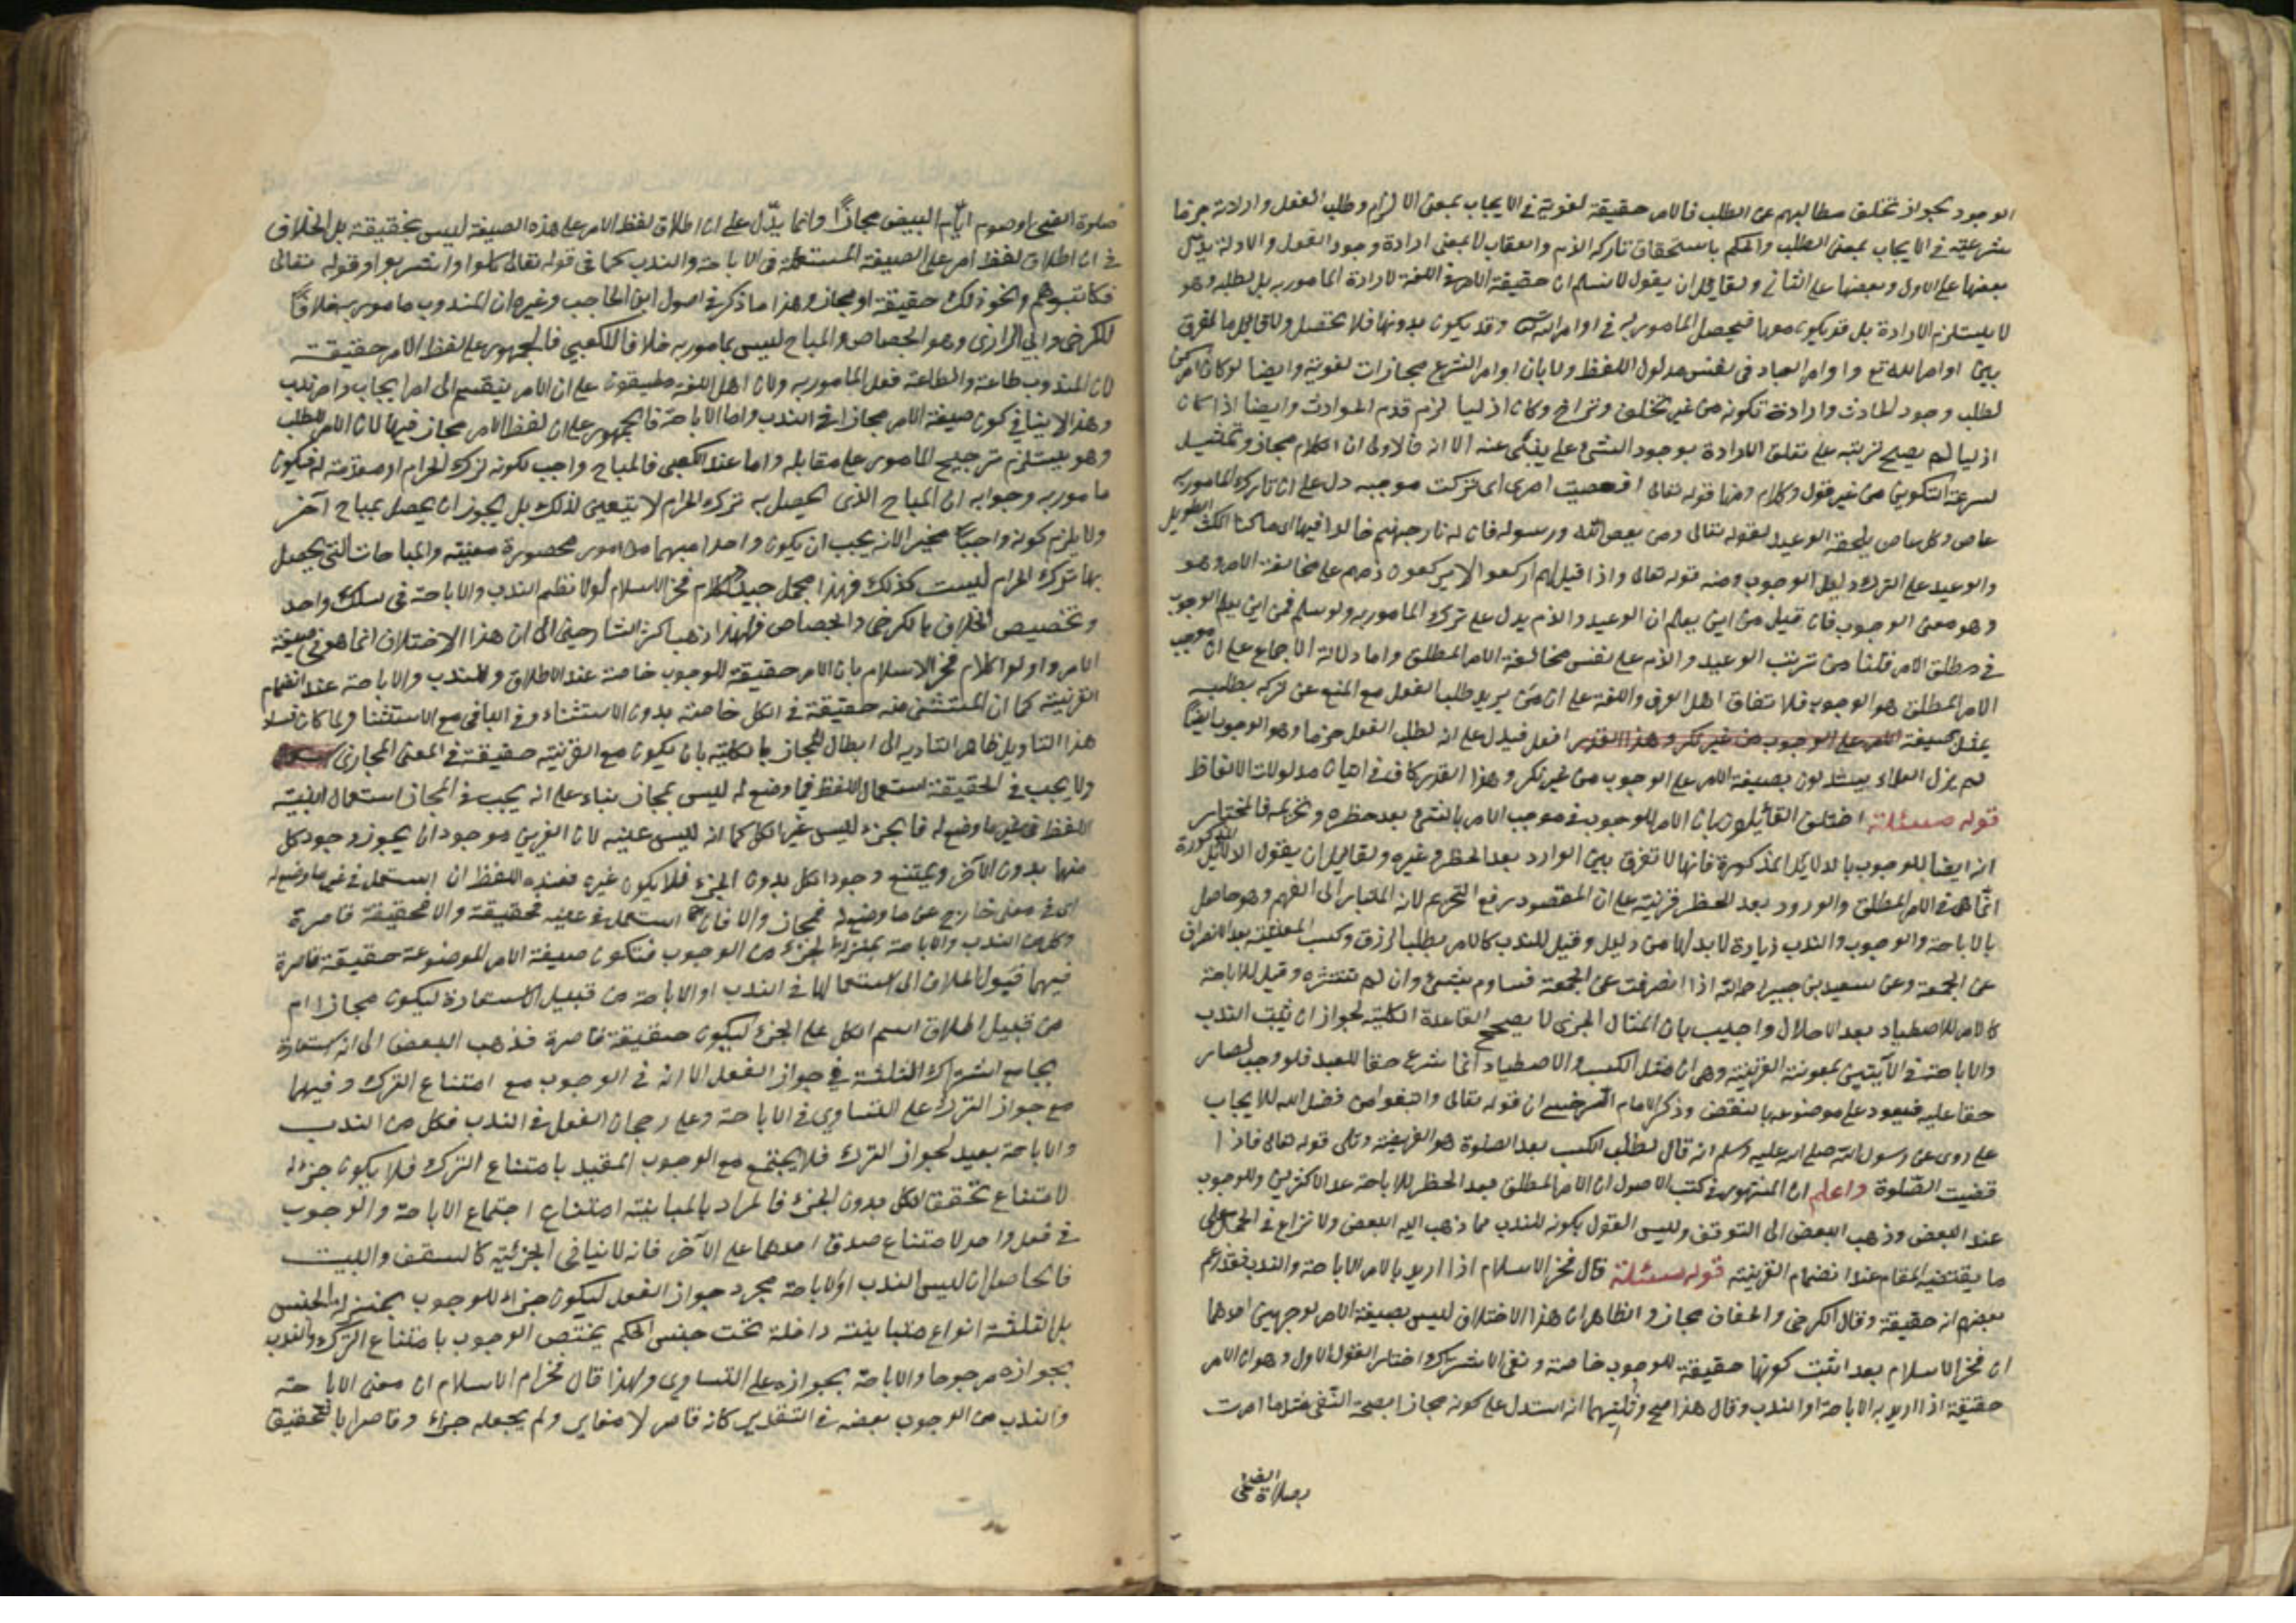 الوجود لجواز تخلف مطالبهم عن الطلب فالامر حقيقة لغوية في الايجاب بمعنى الالزام وطلب الفعل وارادته جزما
شرعية في الايجاب بمعنى الطلب والحكم باستحقاق تاركه الذم والعقاب لا بمعنى ارادة وجود الفعل والادلة يدل
بعضها على الاول وبعضها على الثاني ولقائل ان يقول لا نسلم ان حقيقة الامر في اللغة لارادة المامور به بل لطلبه وهو
لا يستلزم الارادة بل قد يكون معها فيحصل المامور به في اوامر الله وقد يكون بدونها فلا يحصل ولا قائل بالفرق
بين اوامر الله تع واوامر العباد في نفس مدلول اللفظ ولا بان اوامر الشرع مجازات لغوية وايضا لو كان امر كن
لطلب وجود الحادث وارادة تكونه من غير تخلف وتراخ وكان ازليا لزم قدم الحوادث وايضا اذا كان
ازليا لم يصح ترتبه على تعلق الارادة بوجود الشئ على ما ينبئ عنه الا انه فالاولى ان الكلام مجاز وتمثيل
لسرعة التكوين من غير قول وكلام ومنها قوله تعالى افعصيت امرى اى تركت موجبه دل على ان تارك المامور به
عاص وكل عاص يلحقه الوعيد لقوله تعالى ومن يعص الله ورسوله فان له نار جهنم خالدا فيها اى ماكثا المكث الطويل
والوعيد على الترك دليل الوجوب ومنه قوله تعالى واذا قيل لهم اركعوا لا يركعون ذمهم على مخالفة الامر وهو
وهو معنى الوجوب فان قيل من اين يعلم ان الوعيد والذم يدل على ترك المامور به ولو سلم فمن اين يعلم الوجوب
في مطلق الامر قلنا من ترتب الوعيد والذم على نفس مخالفة الامر المطلق واما دلالة الاجماع على ان موجب
الامر المطلق هو الوجوب فلاتفاق اهل العرف واللغة على ان من يريد طلب الفعل مع المنع عن تركه يطلبه
بمثل صيغة افعل فيدل على انه لطلب الفعل جزما وهو الوجوب ايضا
لم يزل العلماء يستدلون بصيغة الامر على الوجوب من غير نكر وهذا القدر كاف في اثبات مدلولات الالفاظ
قوله مسئلة اختلف القائلون بان الامر للوجوب في موجب الامر بالشئ بعد حظره وتحريمه فالمختار
انه ايضا للوجوب بالدلايل المذكورة فانها لا تفرق بين الوارد بعد الحظر وغيره ولقايل ان يقول الدلائل المذكورة
انما هى في الامر المطلق والورود بعد الحظر قرينة على ان المقصود رفع التحريم لانه المتبادر الى الفهم وهو حاصل
بالاباحة والوجوب والندب زيادة لا بد لها من دليل وقيل للندب كالامر بطلب الرزق وكسب المعيشة بعد الانصراف
عن الجمعة وعن سعيد بن جبير رحمه الله اذا انصرفت عن الجمعة فساوم بشئ وان لم تشتره وقيل للاباحة
كالامر للاصطياد بعد الاحلال واجيب بان المثال الجزئى لا يصحح القاعدة الكلية لجواز ان يثبت الندب
والاباحة في الآيتين بمعونة القرينة وهى ان مثل الكسب والاصطياد انما شرع حقا للعبد فلو وجب لصار
حقا عليه فيعود على موضوعه بالنقض وذكر الامام السرخسى ان قوله تعالى وابتغوا من فضل الله للايجاب
على روى عن رسول الله صلى الله عليه وسلم انه قال لطلب الكسب بعد الصلوة هو الفريضة وتلى قوله تعالى فاذا
قضيت الصلوة واعلم ان المشهور في كتب الاصول ان الامر المطلق بعد الحظر للاباحة عند الاكثرين وللوجوب
عند البعض وذهب البعض الى التوقف وليس القول بكونه للندب مما ذهب اليه البعض ولا نزاع في الحمل على
ما يقتضيه المقام عند انضمام القرينة قوله مسئلة قال فخر الاسلام اذا اريد بالامر الاباحة والندب فقد زعم
بعضهم انه حقيقة وقال الكرخى والجصاص مجاز والظاهر ان هذا الاختلاف ليس بصيغة الامر لوجهين احدهما
ان فخر الاسلام بعد اثبت كونها حقيقة للوجوب خاصة ونفى الاشتراك اختار القول الاول وهو ان الامر
حقيقة اذا اريد به الاباحة او الندب وقال هذا اصح وثانيهما انه استدل على كونه مجازا بصحة النفى مثل ما امرت
بصلاة الضحى
صلوة الضحى او صوم ايام البيض مجازًا وانما يدل على ان اطلاق لفظ الامر على هذه الصيغة ليس بحقيقة بل الخلاف
في ان اطلاق لفظ امر على الصيغة المستعملة في الاباحة والندب كما في قوله تعالى كلوا واشربوا وقوله تعالى
فكاتبوهم ونحو ذلك حقيقة او مجاز وهذا ما ذكر في اصول ابن الحاجب وغيره ان المندوب مامور به خلافًا
للكرخى وابي الرازى وهو الجصاص والمباح ليس بمامور به خلافا للكعبي فالجمهور على لفظ الامر حقيقة
لان المندوب طاعة والطاعة فعل المامور به ولان اهل اللغة مطبقون على ان الامر ينقسم الى امر ايجاب وامر ندب
وهذا لا ينافي كون صيغة الامر مجازا في الندب واما الاباحة فالجمهور على ان لفظ الامر مجاز فيها لان الامر للطلب
وهو يستلزم ترجيح المامور على مقابله واما عند الكعبى فالمباح واجب لكونه ترك الحرام او مقدمة له فيكون
مامور به وجوابه ان المباح الذى يحصل به ترك الحرام لا يتعين لذلك بل يجوز ان يحصل بمباح آخر
ولا يلزم كونه واجبا مخيرا لانه يجب ان يكون واحدا مبهما من امور محصورة معينة والمباحات التى يحصل
بها ترك الحرام ليست كذلك فهذا محمل جيد لكلام فخر الاسلام لولا نظم الندب والاباحة في سلك واحد
وتخصيص الخلاف بالكرخى والجصاص فلهذا ذهب اكثر الشارحين الى ان هذا الاختلاف انما هو في صيغة
الامر واولوا كلام فخر الاسلام بان الامر حقيقة للوجوب خاصة عند الاطلاق وللندب والاباحة عند انضمام
القرينة كما ان المستثنى منه حقيقة في الكل خاصة بدون الاستثناء وفي الباقي مع الاستثناء ولما كان فساد
هذا التاويل ظاهر التاديه الى ابطال المجاز بالكلية بان يكون مع القرينة حقيقة في المعنى المجازى
ولا يجب في الحقيقة استعمال اللفظ فيما وضع له ليس بمجاز بناء على انه يجب في المجاز استعمال
اللفظ في غير ما وضع له فالجزء ليس غير الكل كما انه ليس عينه لان الغيرين موجودان يجوز وجود كل
منهما بدون الآخر ويمتنع وجود الكل بدون الجزء فلا يكون غيره فعنده اللفظ ان استعمل في غير ما وضع له
اى في معنى خارج عن ما وضع له فمجاز والا فان استعمل في عينه فحقيقة والا فحقيقة قاصرة
وكل من الندب والاباحة بمنزلة الجزء من الوجوب فتكون صيغة الامر الموضوعة حقيقة قاصرة
فيهما فيؤل الخلاف الى استعمالها في الندب او الاباحة من قبيل الاستعارة ليكون مجازا ام
من قبيل اطلاق اسم الكل على الجزء ليكون حقيقة قاصرة فذهب البعض الى انه استعارة
بجامع اشتراك الثلثة في جواز الفعل الا انه في الوجوب مع امتناع الترك وفيهما
مع جواز الترك على التساوى في الاباحة وعلى رجحان الفعل في الندب فكل من الندب
والاباحة بعيد لجواز الترك فلا يجتمع مع الوجوب المقيد بامتناع الترك فلا يكون جزءله
لامتناع تحقق الكل بدون الجزء فالمراد بالمباينة امتناع اجتماع الاباحة والوجوب
في فعل واحد لامتناع صدق احدهما على الآخر فانه لا ينافى الجزئية كالسقف والبيت
فالحاصل ان ليس الندب او الاباحة مجرد جواز الفعل ليكون جزاء للوجوب بمنزلة الجنس
بل الثلثة انواع متباينة داخلة تحت جنس الحكم يختص الوجوب بامتناع الترك والندب
بجوازه مرجوحا والاباحة بجوازه على التساوى ولهذا قال فخر الاسلام ان معنى الاباحة
والندب من الوجوب بعضه في التقدير كانه قاصر لا مغاير ولم يجعله جزء وقاصرا بالتحقيق